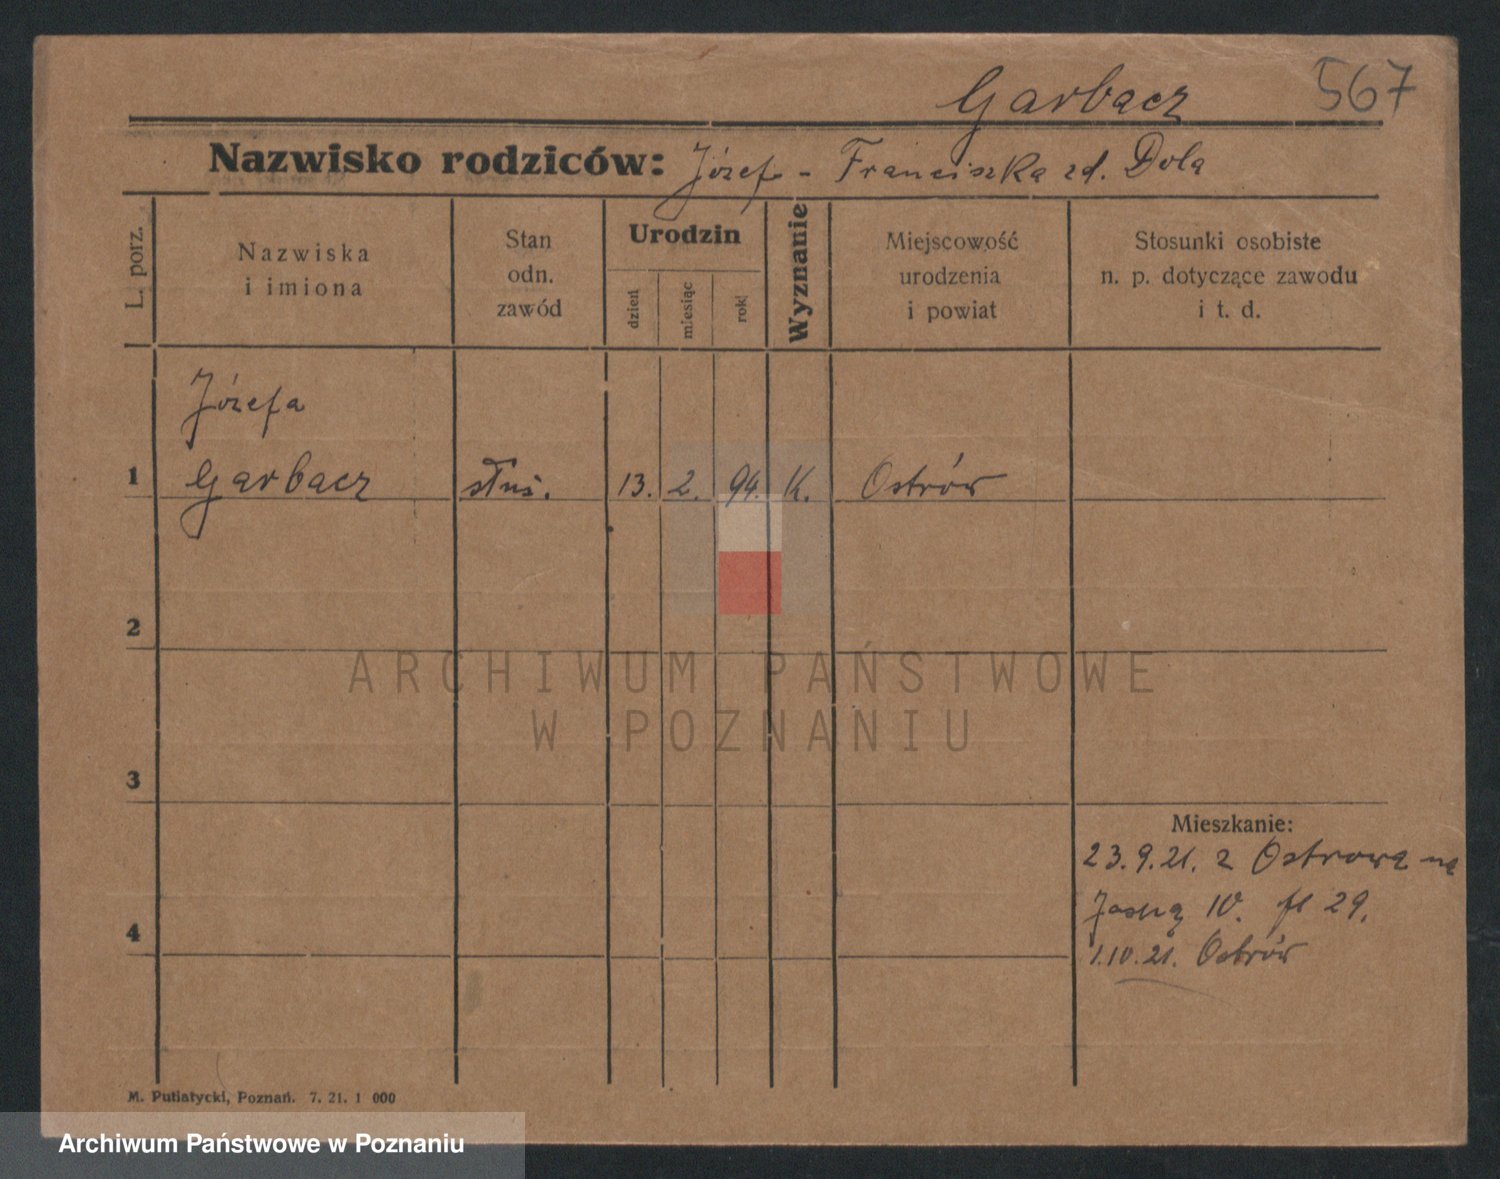 Garbacz 567
Nazwisko rodziców: Józef - Franciszka zd. Dola
L. porz.
Nazwiska
i imiona
Stan
odn.
zawód
Urodzin
dzień
miesiąc
rok
Wyznanie
Miejscowość
urodzenia
i powiat
Stosunki osobiste
n. p. dotyczące zawodu
i t. d.
Józefa
1 Garbacz służ. 13. 2. 94. K. Ostrów
2
ARCHIWUM PAŃSTWOWE
W POZNANIU
3
Mieszkanie:
23.9.21. z Ostrowa na
Jasną 10. fl 29.
4
1.10.21. Ostrów
M. Putiatycki, Poznań. 7. 21. 1 000
Archiwum Państwowe w Poznaniu